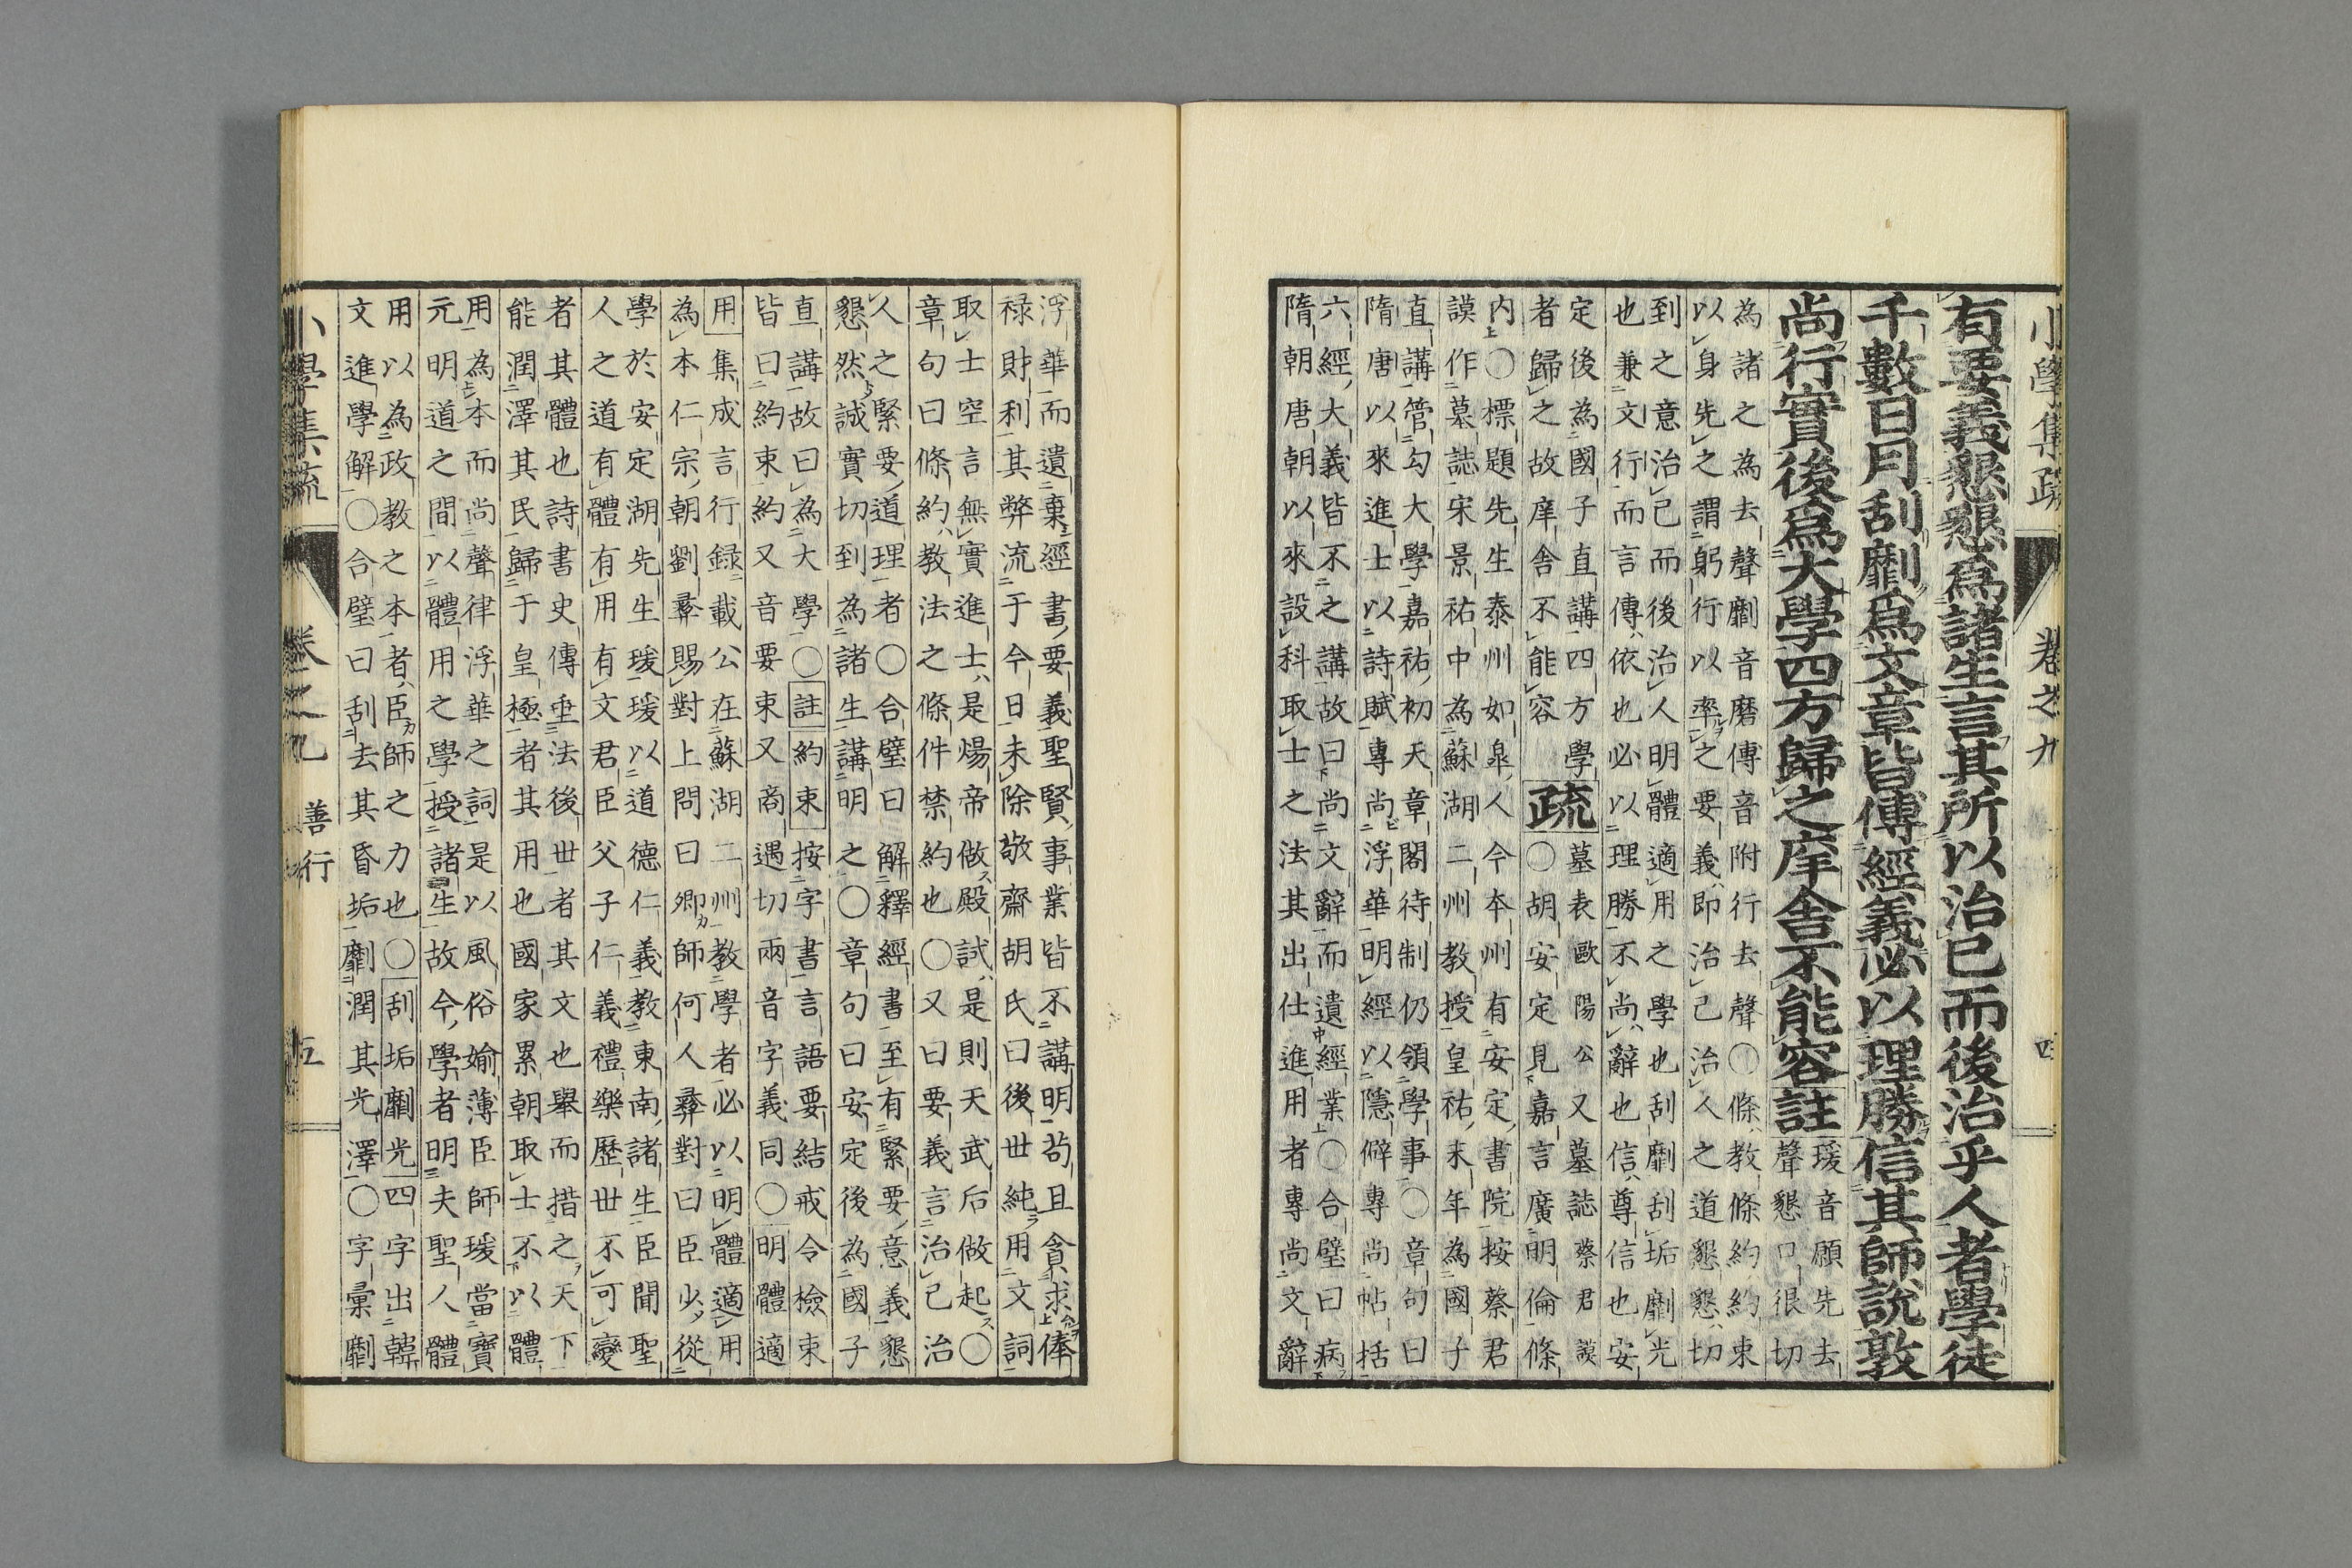 小學集疏　卷之九　四
有要義懇懇爲諸生言其所以治已而後治乎人者學徒
千數日月刮劘爲文章皆傅經義必以理勝信其師説敦
尚行實後爲大學四方歸之庠舍不能容註
瑗音願先去
聲懇口很切
為諸之為去聲劘音磨傅音附行去聲〇條教條約約束
以身先之謂躬行以率之要義即治己治人之道懇懇切
到之意治己而後治人明體適用之學也刮劘刮垢劘光
也兼文行而言傅依也必以理勝不尚辭也信尊信也安
定後為國子直講四方學
者歸之故庠舍不能容
疏
墓表歐陽公又墓誌蔡君謨
〇胡安定見嘉言廣明倫條
内〇標題先生泰州如皐人今本州有安定書院按蔡君
謨作墓誌宋景祐中為蘇湖二州教授皇祐末年為國子
直講管勾大學嘉祐初天章閣待制仍領學事〇章句曰
隋唐以來進士以詩賦專尚浮華明經以隱僻專尚帖括
六經大義皆不之講故曰尚文辭而遺經業〇合璧曰病
隋朝唐朝以來設科取士之法其出仕進用者專尚文辭
浮華而遺棄經書要義聖賢事業皆不講明苟且貪求俸
禄財利其弊流于今日未除敬齋胡氏曰後世純用文詞
取士空言無實進士是煬帝做殿試是則天武后做起〇
章句曰條約教法之條件禁約也〇又曰要義言治己治
人之緊要道理者〇合璧曰解釋經書至有緊要意義懇
懇然誠實切到為諸生講明之〇章句曰安定後為國子
直講故曰為大學〇註約束按字書言語要結戒令檢束
皆曰約束約又音要束又商遇切兩音字義同〇明體適
用集成言行録載公在蘇湖二州教學者必以明體適用
為本仁宗朝劉彝賜對上問曰卿師何人彝對曰臣少從
學於安定湖先生瑗瑗以道德仁義教東南諸生臣聞聖
人之道有體有用有文君臣父子仁義禮樂歷世不可變
者其體也詩書史傳埀法後世者其文也舉而措之天下
能潤澤其民歸于皇極者其用也國家累朝取士不以體
用為本而尚聲律浮華之詞是以風俗婾薄臣師瑗當寶
元明道之間以體用之學授諸生故今學者明夫聖人體
用以為政教之本者臣師之力也〇刮垢劘光四字出韓
文進學解〇合璧曰刮去其昏垢劘潤其光澤〇字彙劘
小學集疏　卷之九　善行　五